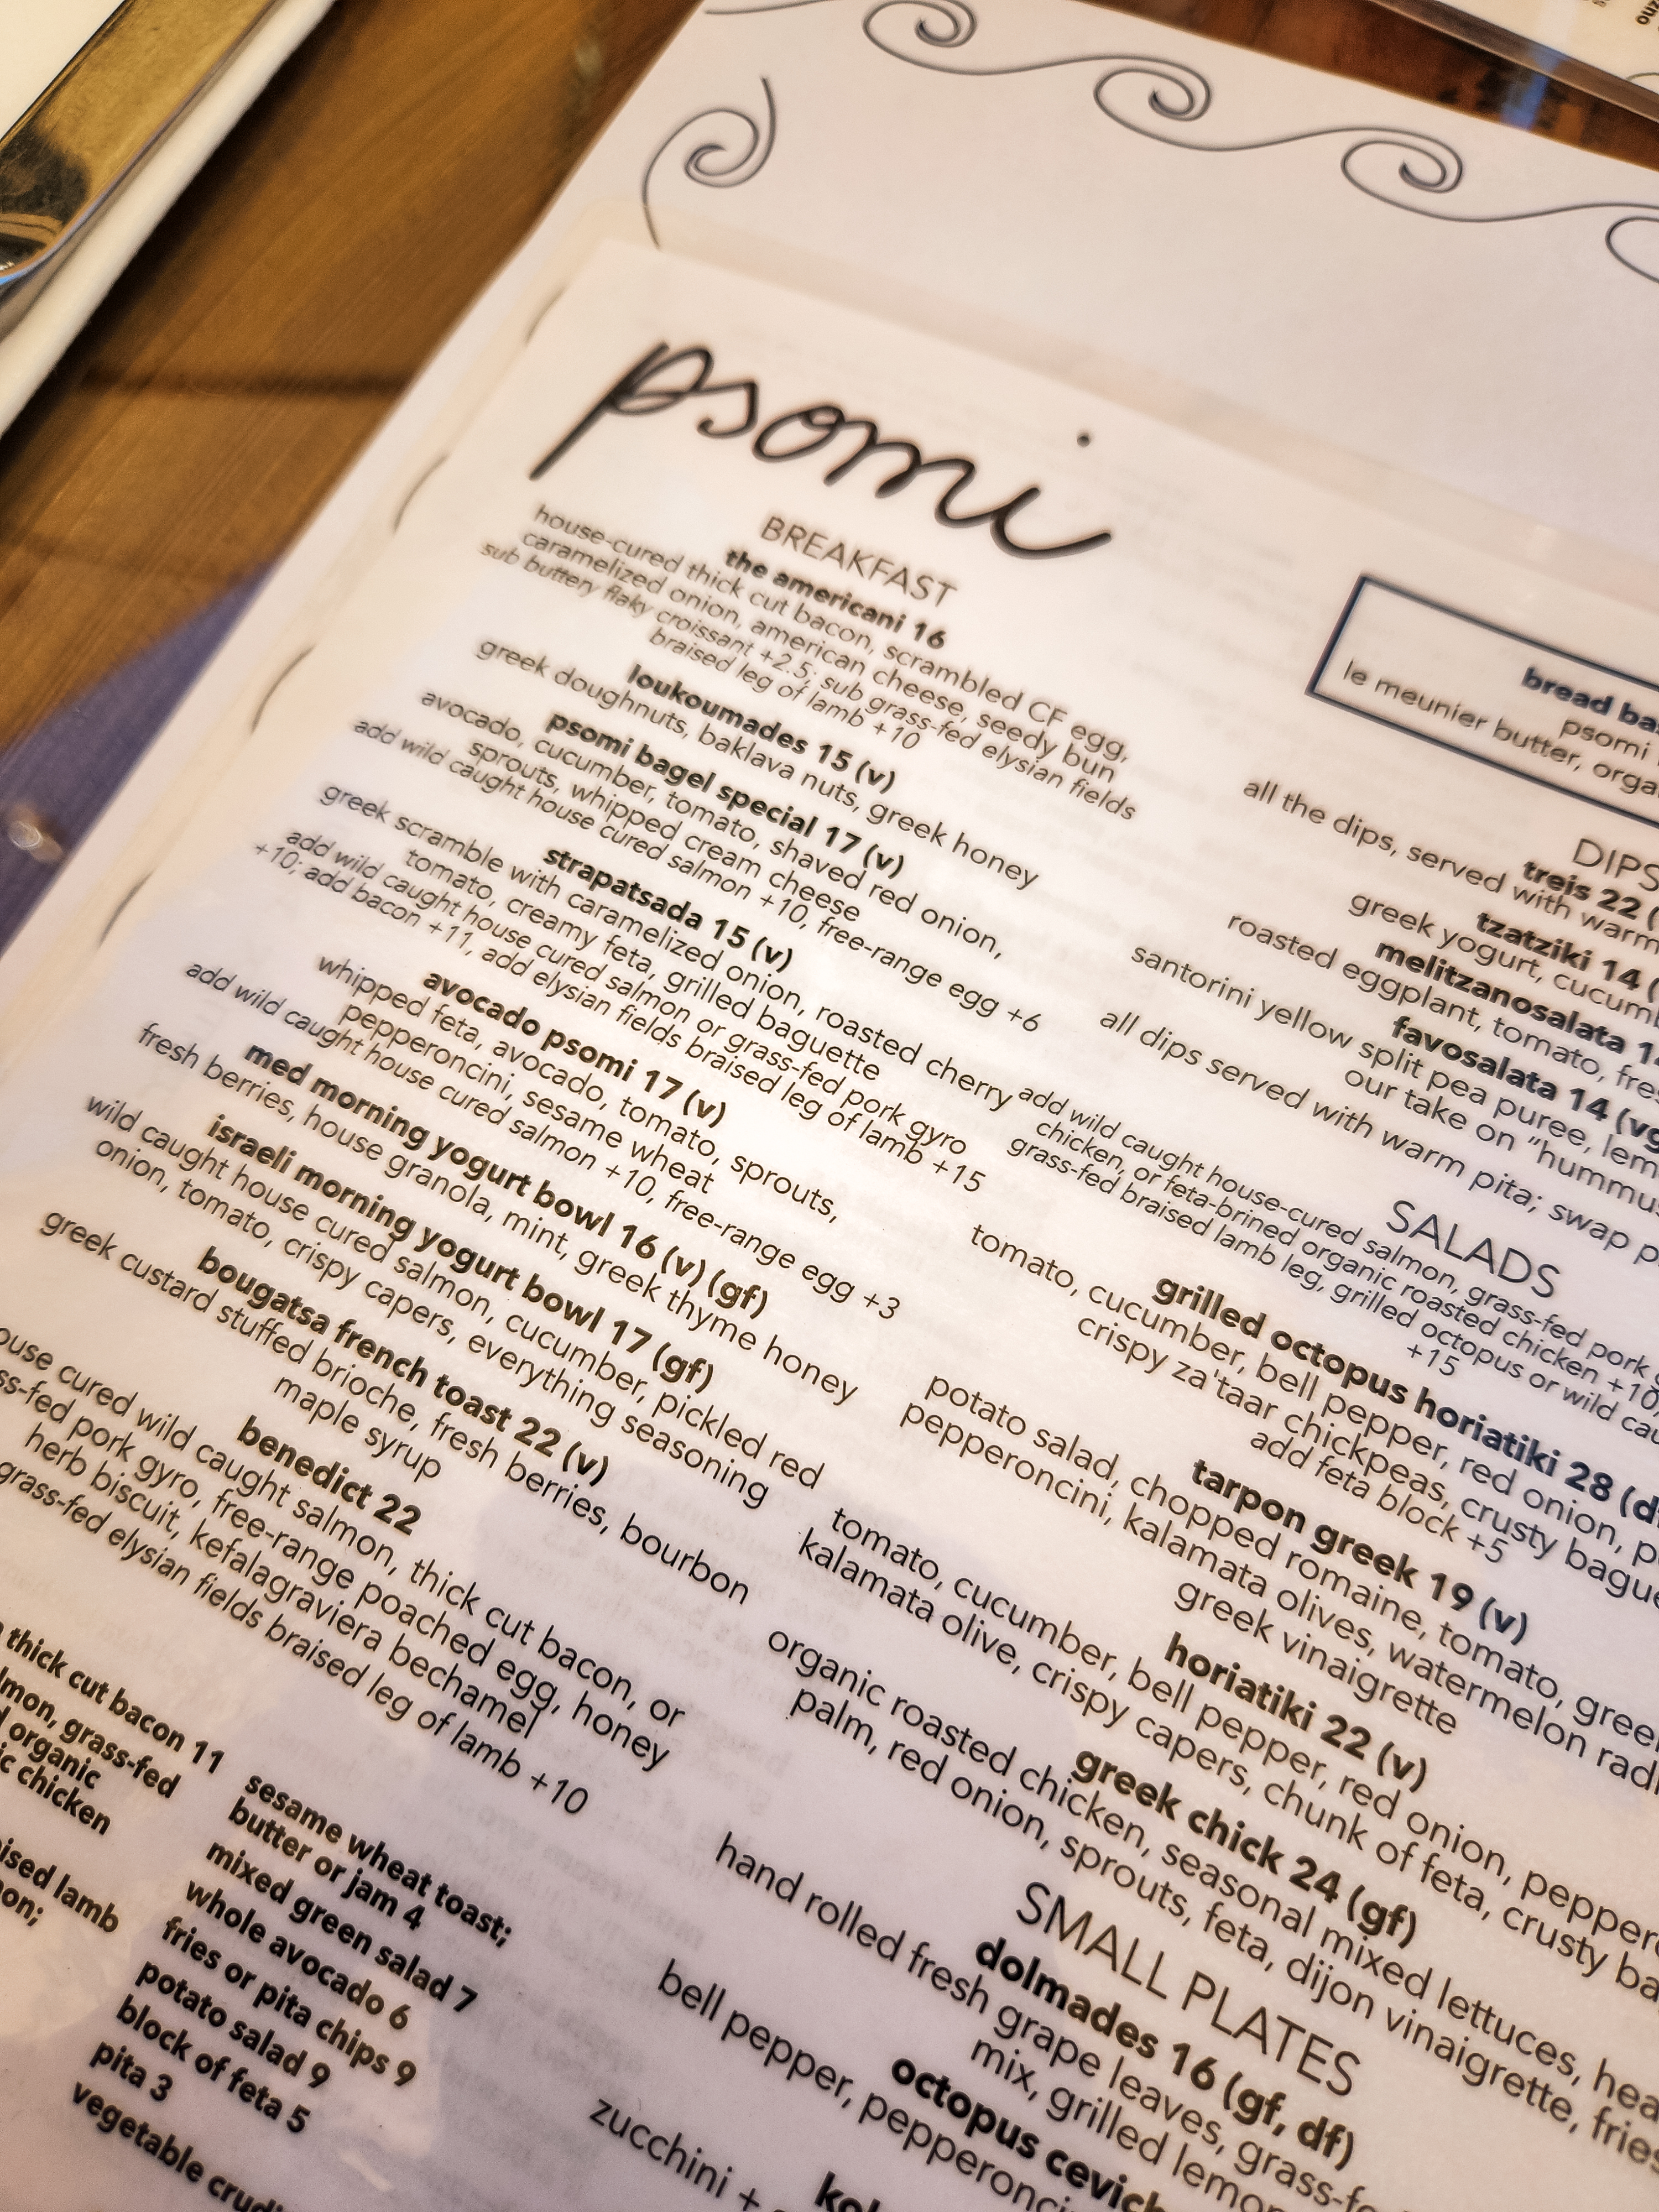 psomi
BREAKFAST
the americani 16
house-cured thick cut bacon, scrambled CF egg,
caramelized onion, american cheese, seedy bun
sub buttery flaky croissant +2.5; sub grass-fed elysian fields
braised leg of lamb +10
loukoumades 15 (v)
greek doughnuts, baklava nuts, greek honey
psomi bagel special 17 (v)
avocado, cucumber, tomato, shaved red onion,
sprouts, whipped cream cheese
add wild caught house cured salmon +10, free-range egg +6
strapatsada 15 (v)
greek scramble with caramelized onion, roasted cherry
tomato, creamy feta, grilled baguette
add wild caught house cured salmon or grass-fed pork gyro
+10; add bacon +11, add elysian fields braised leg of lamb +15
avocado psomi 17 (v)
whipped feta, avocado, tomato, sprouts,
pepperoncini, sesame wheat
add wild caught house cured salmon +10, free-range egg +3
med morning yogurt bowl 16 (v) (gf)
fresh berries, house granola, mint, greek thyme honey
israeli morning yogurt bowl 17 (gf)
wild caught house cured salmon, cucumber, pickled red
onion, tomato, crispy capers, everything seasoning
bougatsa french toast 22 (v)
greek custard stuffed brioche, fresh berries, bourbon
maple syrup
benedict 22
ouse cured wild caught salmon, thick cut bacon, or
ss-fed pork gyro, free-range poached egg, honey
herb biscuit, kefalagraviera bechamel
grass-fed elysian fields braised leg of lamb +10
thick cut bacon 11
lmon, grass-fed
organic
c chicken
ised lamb
on;
sesame wheat toast;
butter or jam 4
mixed green salad 7
whole avocado 6
fries or pita chips 9
potato salad 9
block of feta 5
pita 3
vegetable crudi
bread ba
psomi
le meunier butter, orga
DIPS
treis 22 (
all the dips, served with warm
tzatziki 14 (
greek yogurt, cucum
melitzanosalata 14
roasted eggplant, tomato, fres
favosalata 14 (vg
santorini yellow split pea puree, lem
our take on "hummu
all dips served with warm pita; swap p
SALADS
add wild caught house-cured salmon, grass-fed pork g
chicken, or feta-brined organic roasted chicken +10,
grass-fed braised lamb leg, grilled octopus or wild cau
+15
grilled octopus horiatiki 28 (d
tomato, cucumber, bell pepper, red onion, p
crispy za'taar chickpeas, crusty bague
add feta block +5
tarpon greek 19 (v)
potato salad, chopped romaine, tomato, gree
pepperoncini, kalamata olives, watermelon radi
greek vinaigrette
horiatiki 22 (v)
tomato, cucumber, bell pepper, red onion, pepper
kalamata olive, crispy capers, chunk of feta, crusty ba
greek chick 24 (gf)
organic roasted chicken, seasonal mixed lettuces, hea
palm, red onion, sprouts, feta, dijon vinaigrette, fries
SMALL PLATES
dolmades 16 (gf, df)
hand rolled fresh grape leaves, grass-fe
mix, grilled lemon
octopus cevich
bell pepper, pepperonci
kol
zucchini +